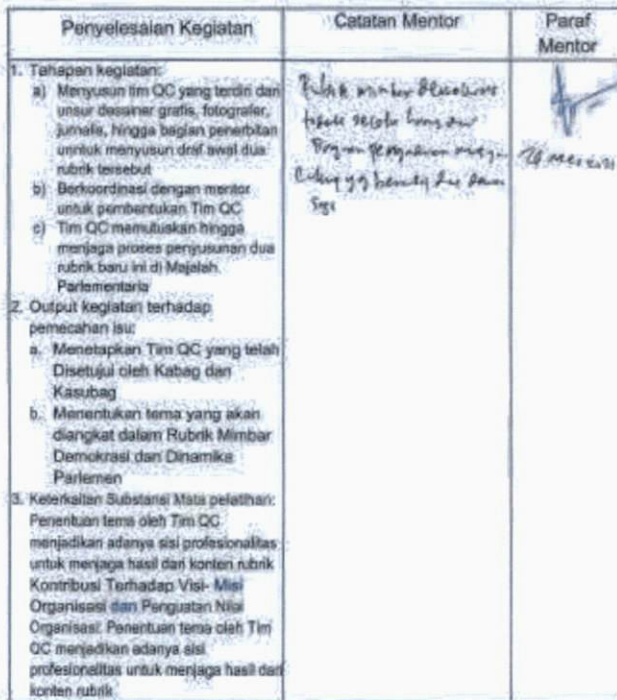 Penyelesaian Kegiatan
Catatan Mentor
Paraf
Mentor
1. Tahapan kegiatan:
a) Menyusun tim QC yang terdiri dari
unsur desainer grafis, fotografer,
jurnalis, hingga bagian penerbitan
unntuk menyusun draf awal dua
rubrik tersebut
b) Berkoordinasi dengan mentor
untuk pembentukan Tim QC
c) Tim QC memutuskan hingga
menjaga proses penyusunan dua
rubrik baru ini di Majalah
Parlementaria
2. Output kegiatan terhadap
pemecahan isu:
a. Menetapkan Tim QC yang telah
Disetujui oleh Kabag dan
Kasubag
b. Menentukan tema yang akan
diangkat dalam Rubrik Mimbar
Demokrasi dan Dinamika
Parlemen
3. Keterkaitan Substansi Mata pelatihan:
Penentuan tema oleh Tim QC
menjadikan adanya sisi profesionalitas
untuk menjaga hasil dari konten rubrik
Kontribusi Terhadap Visi- Misi
Organisasi dan Penguatan Nilai
Organisasi: Penentuan tema oleh Tim
QC menjadikan adanya sisi
profesionalitas untuk menjaga hasil dari
konten rubrik